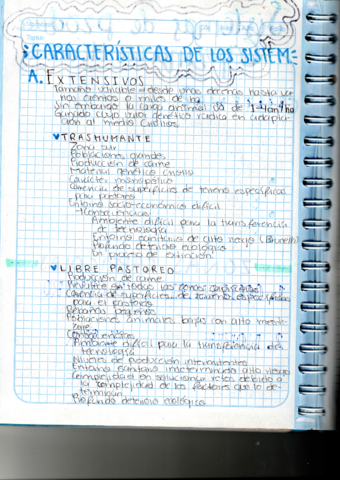 CARACTERÍSTICAS DE LOS SISTEM
A. EXTENSIVOS
Tamaño variable desde unas decenas hasta va
rias cientos o miles de ha
Sin embargo la carga animal va de
Ganado cuyo valor genético radica en adapta
ción al medio Criollos
TRASHUMANTE
Zona sur
Poblaciones grandes
Producción de carne
Material genético criollo
Carácter monopólico
Carencia de superficies de terreno específicas
para pastoreo
Entorno socioeconómico difícil
Consecuencias
Ambiente difícil para la transferencia
de tecnología
Entorno sanitario de alto riesgo
Profundo deterioro ecológico
En proceso de extinción
LIBRE PASTOREO
Producción de carne
en todas las zonas
Carencia de superficies de terreno específicas
para el pastoreo
Rebaños pequeños
Poblaciones animales bajas con alto mesti
zaje
Consecuencias
Ambiente difícil para la transferencia de
tecnología
Niveles de producción intermitentes
Entorno sanitario indeterminado alto riesgo
Complejidad en solucionar retos debido a
la complejidad de los factores que lo de
terminan
Profundo deterioro ecológico